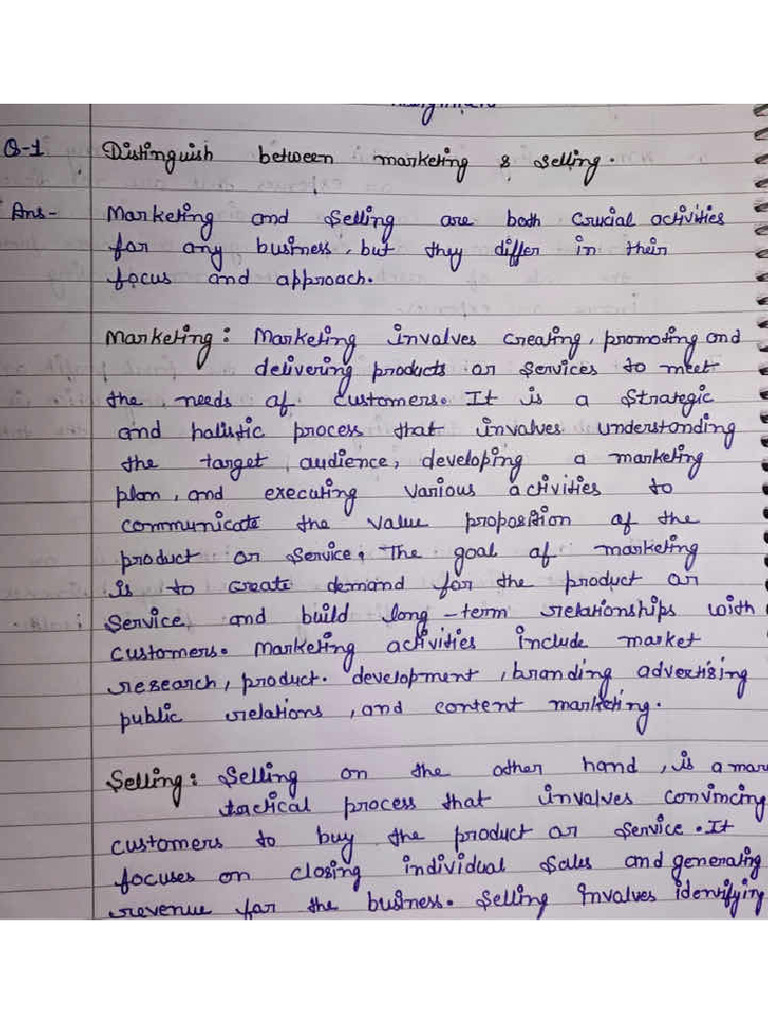 Q-1 Distinguish between marketing & selling.
Ans- Marketing and Selling are both crucial activities
for any business, but they differ in their
focus and approach.
Marketing: Marketing involves creating, promoting and
delivering products or services to meet
the needs of customers. It is a strategic
and holistic process that involves understanding
the target audience, developing a marketing
plan, and executing various activities to
communicate the value proposition of the
product or service. The goal of marketing
is to create demand for the product or
service and build long-term relationships with
customers. Marketing activities include market
research, product. development, branding advertising
public relations, and content marketing.
Selling: Selling on the other hand, is a mor
tactical process that involves convincing
customers to buy the product or service. It
focuses on closing individual sales and generating
revenue for the business. Selling involves identifying